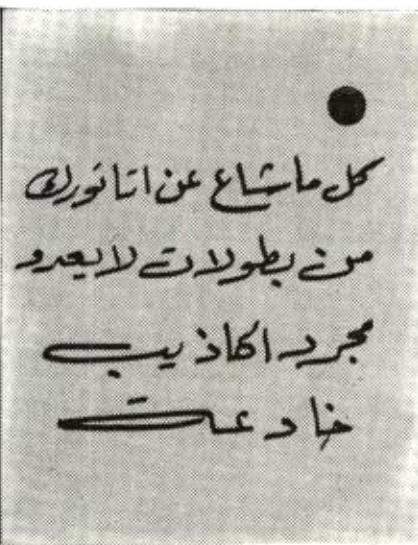 كل ما شاع عن اتاتورك
من بطولات لا يعدو
مجرد اكاذيب
خادعة